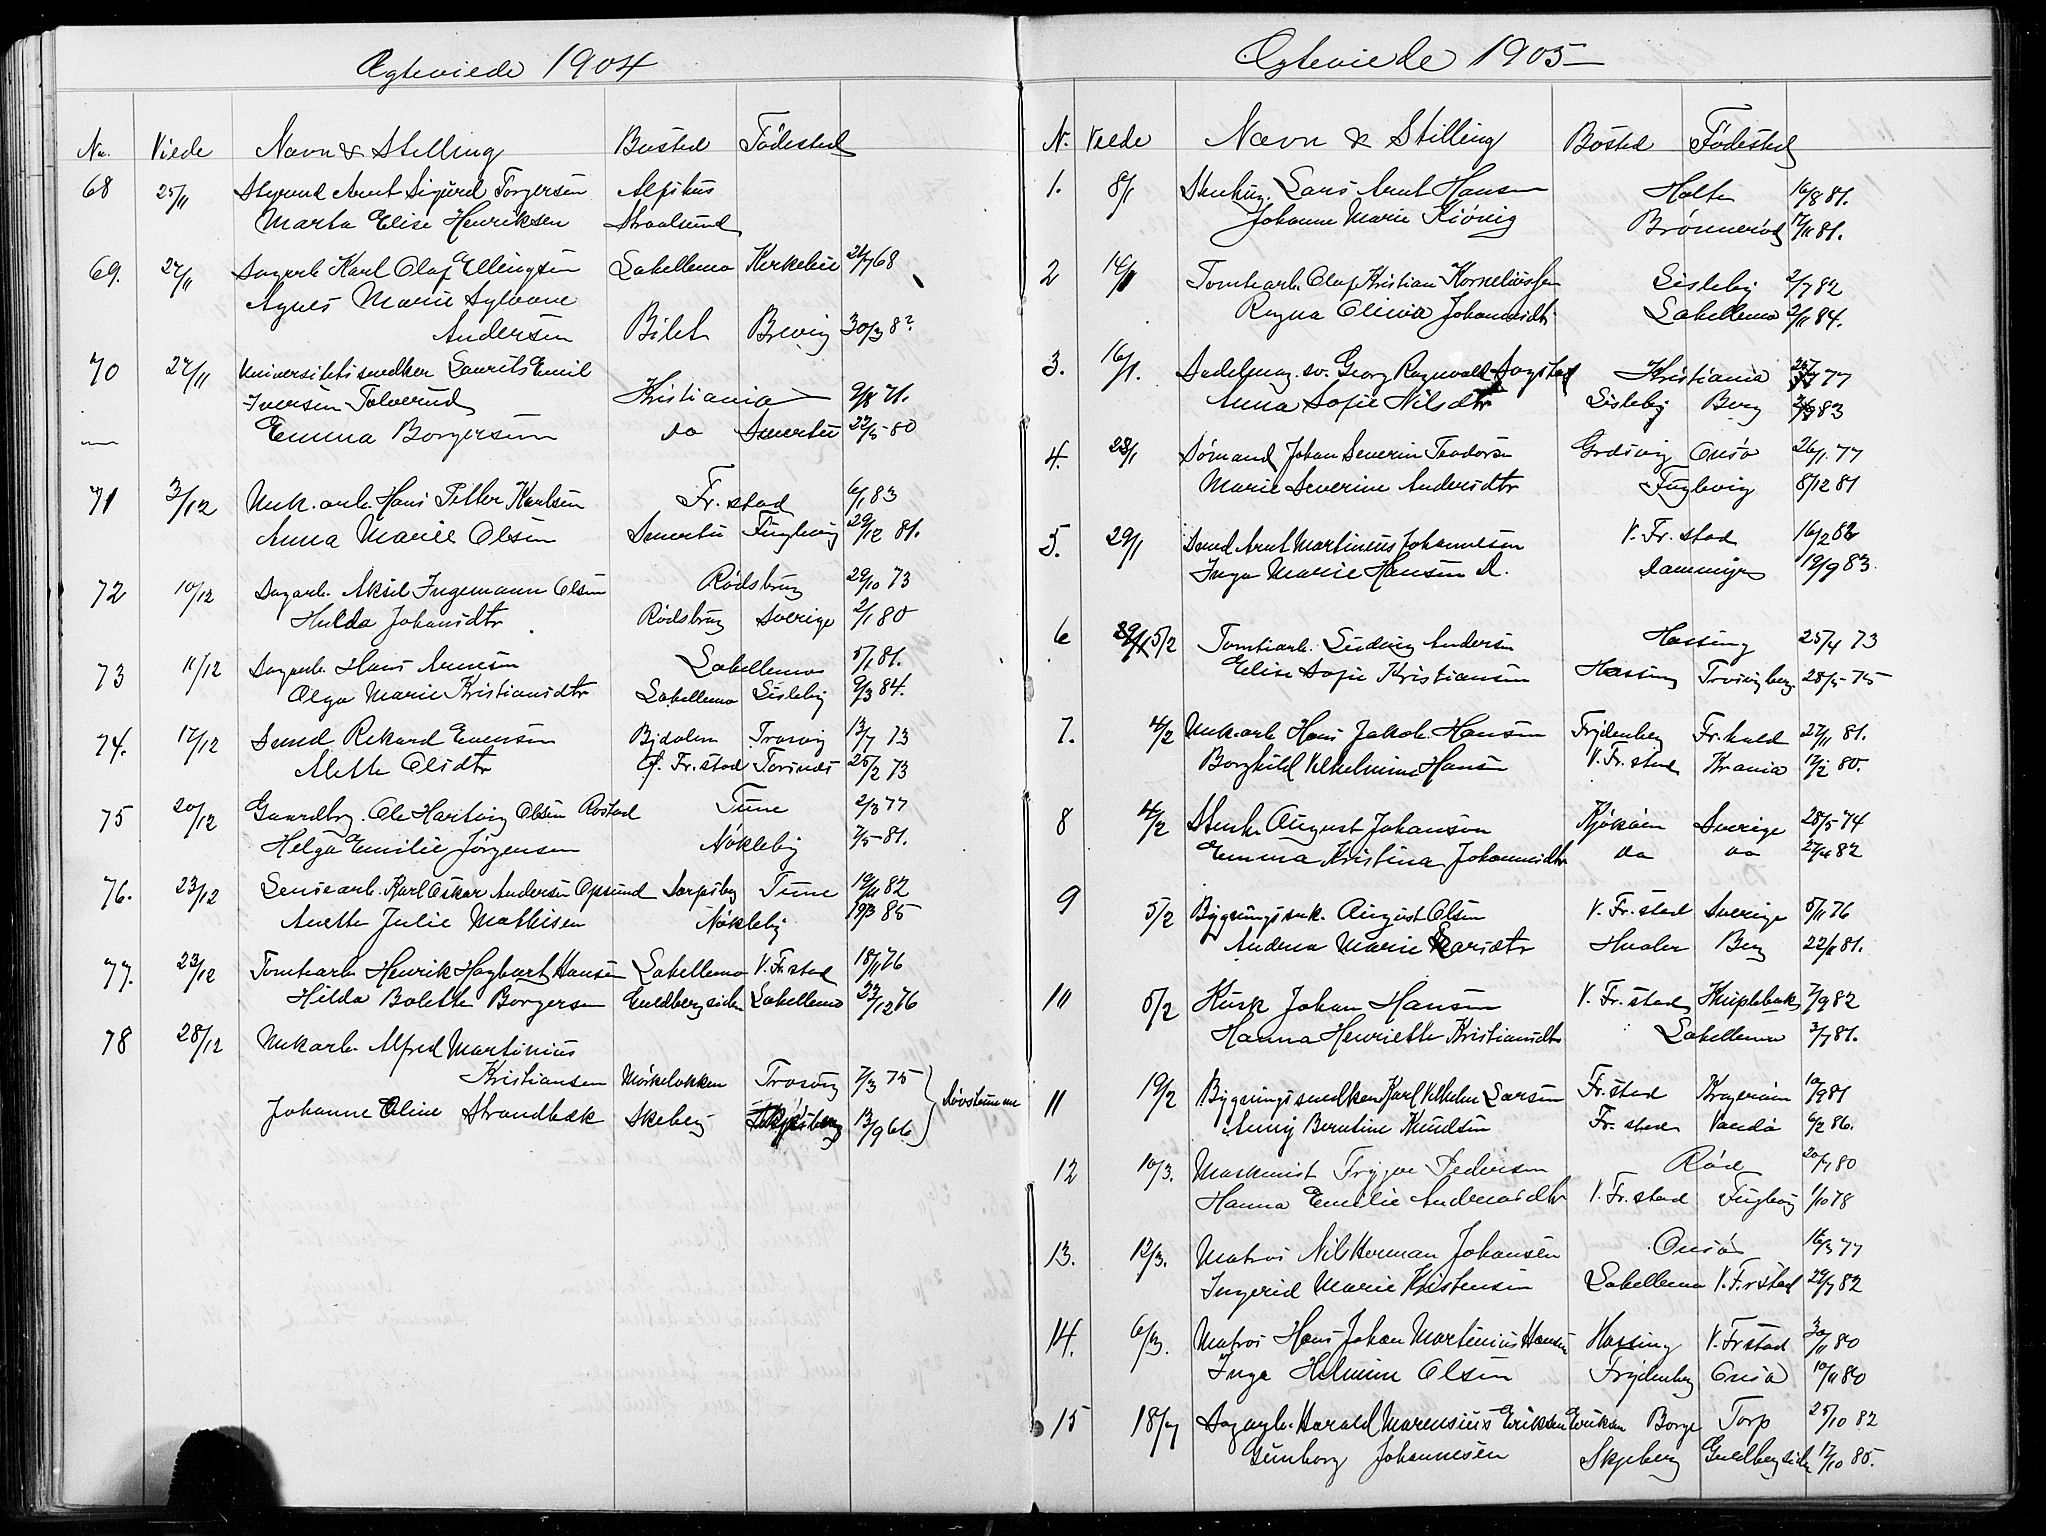 Ægteviede 1904
No. Viede Navn & Stilling Bosted Fødested
68 25/11 Arnt Sigurd Torgersen Alfshus
Marta Elise Henriksen Straalsund
69. 27/11 Sagarb. Karl Olaf Ellingsen Labellemo Kirkebøe 68
Agnes Marie Sylvane
Andersen Bilet Brevig 30/3 82
70 27/11 Universitetssnedker Laurits Emil
Iversen Tolverud Kristiania 9/8 71.
Emma Borgersen do Smertu 22/5 80
71 3/12 Mek. arb. Hans Petter Karlsen Fr. stad 6/1 83
Anna Marie Olsen Smertu Fuglevig 29/12 81.
72 10/12 Sagarb. Aksel Ingemann Olsen Rødsbrug 29/10 73
Hulda Johansdtr. Rødsbrug Sverige 2/1 80
73 11/12 Sagarb. Hans Arnesen Labellemo 5/1 81.
Olga Marie Kristiansdtr Labellemo Lisleby 9/3 84.
74. 17/12 Smed Rikard Evensen Bydalen Trosvig 13/7 73
Alette Olsdtr Gl. Fr. stad Torsnes 25/2 73
75 20/12 Gaardbr. Ole Hartvig Olsen Rostad Tune 2/3 77
Helga Emilie Jørgensen Nøkleby 7/5 81.
76. 23/12 Lensearb. Karl Oskar Andersen Opsund Sarpsborg Tune 19/11 82
Anette Julie Mathisen Nøkleby 19/3 85
77. 23/12 Tomtearb. Henrik Hagbart Hansen Labellemo V. Fr. stad 18/11 76
Hilda Bolette Borgersen Guldbergsiden Labellemo 23/12 76
78 28/12 Mek arb. Alfred Martinius
Kristiansen Mørkeløkken Trosvig 7/3 75
Johanne Oline Strandbæk Skeberg 13/9 66.
Ægteviede 1905
N. Viede Navn & Stilling Bosted Fødested
1. 8/1 Stenhug. Lars Arnt Hansen Holte 16/8 81.
Johanne Marie Kiønig Brønnerød 17/11 81.
2 14/1 Tomtearb. Olaf Kristian Korneliussen Lisleby 2/7 82
Ragna Olivia Johannesdtr. Labellemo 2/11 84.
3. 16/1. Sadelmag. sv. Georg Ragnvald Sogstad Kristiania 77
Anna Sofie Nilsdtr Lisleby Berg 83
4. 23/1 Sømand Johan Severin Teodorsen Gressvig Onsø 26/1. 77
Marie Severine Andersdtr Fuglevig 8/12 81
5. 29/1 Smed Arnt Martinius Johannesen V. Fr. stad 16/2 82
Inga Marie Hansen D. 19/9 83
6 5/2 Tomtearb. Ludvig Andersen Hassing 25/4 73
Elise Sofie Kristiansen Hassing Trosvigberg 28/5 75
7. 4/2 Mek. arb Hans Jakob Hansen Frydenberg Fr. hald 27/11 81.
Borghild Vilhelmine Hansen V. Fr. stad Krania 17/2 80.
8 4/2 Stenh. August Johanson Kjøkøen Sverige 28/5 74
Emma Kristina Johannesdtr do do 82
9 5/2 Bygningssnk. August Olsen V. Fr. stad Sverige 5/11 76
Andrea Marie Larsdtr Hvaler Berg 22/1 81.
10 5/2 Kusk Johan Hansen V. Fr. stad Kniplebak 7/9 82
Hanna Henriette Kristiansdtr Labellemo 3/7 81.
11 19/2 Bygningssnedker Karl Vilhelm Larsen Fr. stad Kragerøen 10/9 81
Anny Berntine Knudsen Fr. stad Vardø 6/2 86.
12 10/3. Maskinist Trygve Pedersen Rød 20/7 80
Hanna Emilie Andreasdtr V. Fr. stad Fuglevig 1/10 78
13. 12/3. Matros Nils Herman Johansen Onsø 16/3 77
Ingerid Marie Kristensen Labellemo V. Fr stad 29/7 82
14. 6/3. Matros Hans Johan Martinius Hansen Hassing V. Fr stad 30/11 80
Inga Helmine Olsen Frydenberg Onsø 10/11 80
15 18/4 Sagarb. Harald Marensius Eriksen Eriksen Borge Torp 25/10 82
Gunborg Johannesen Skjeberg Guldbergsiden 17/10 85.